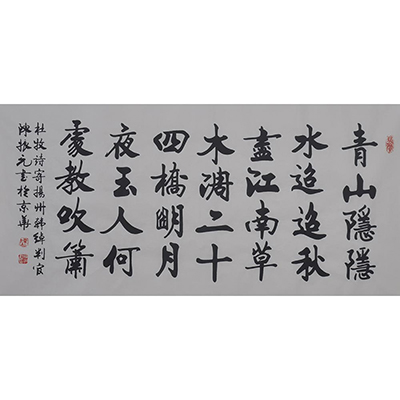 青山隱隱
水迢迢秋
盡江南草
木凋二十
四橋明月
夜玉人何
處教吹簫
杜牧詩寄揚州韓綽判官
陳振元書於京華